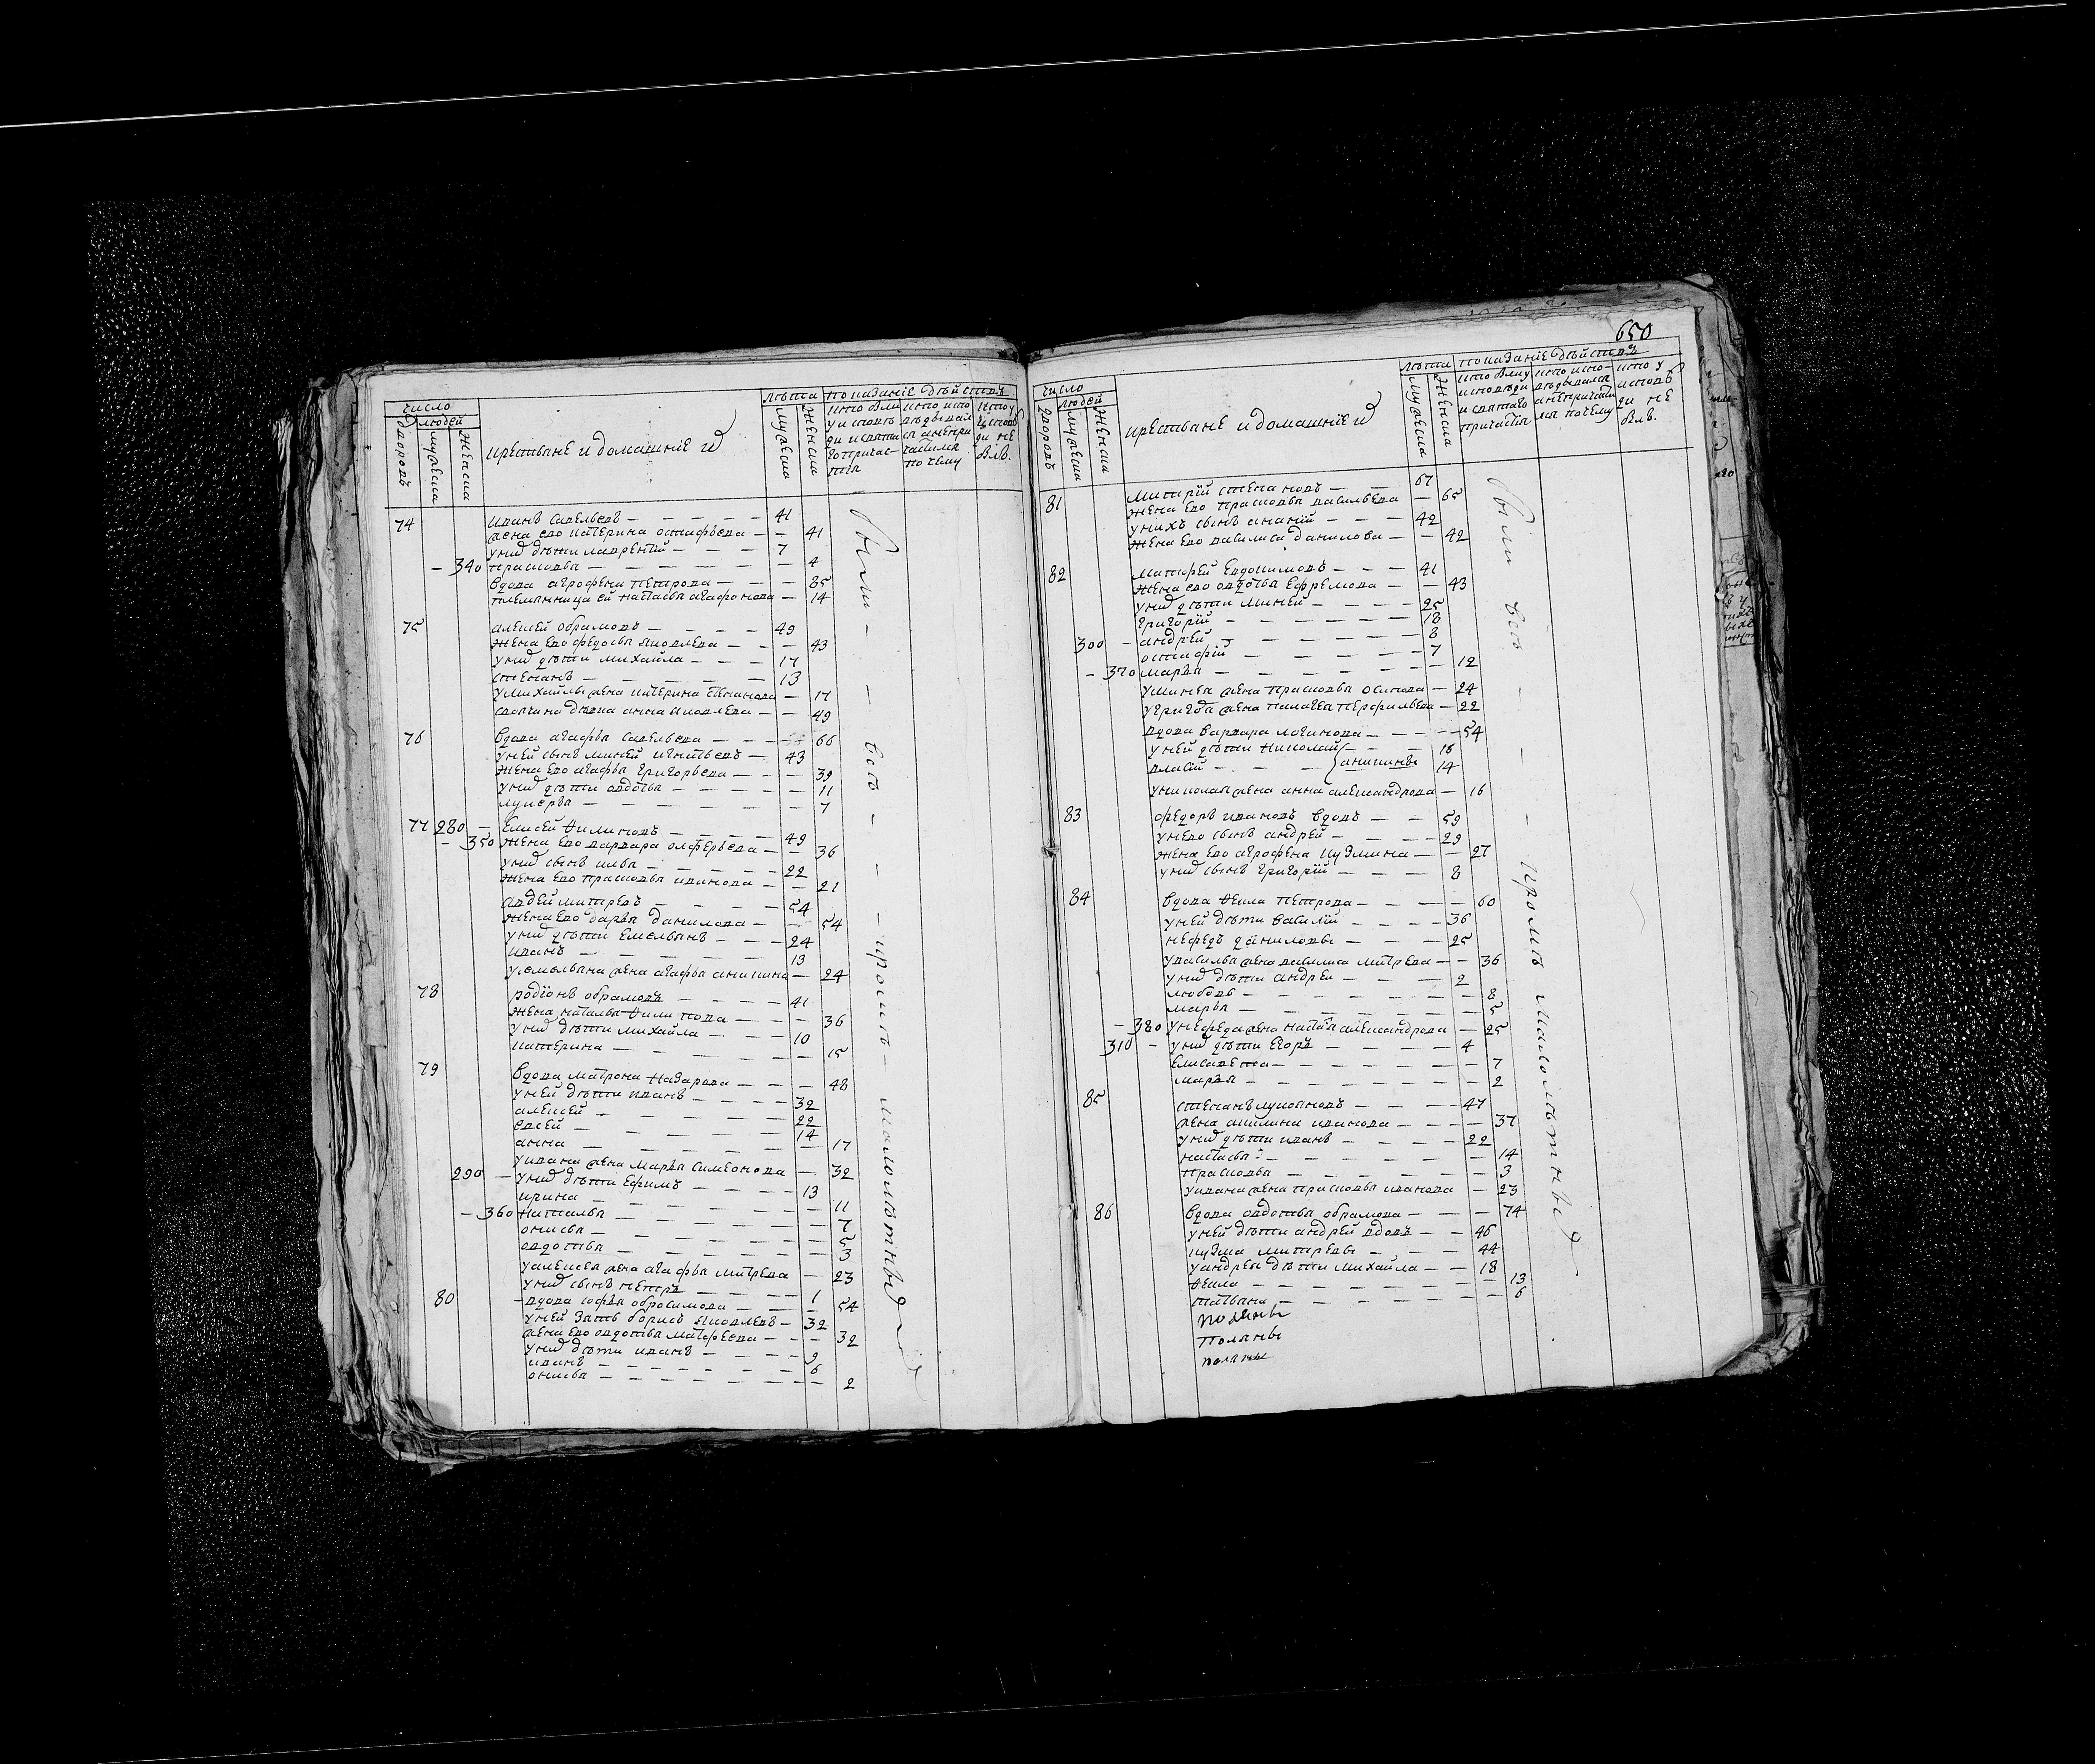 число
людей
дворовъ
мужеска
женска
крестьяне и домашнїе ихъ
лѣта
мужеска
женска
показанїе дѣйствъ
кто были
у исповѣ
ди и свята
го причас-
тїя
кто испо
вѣдывал
ся а не при
частился
по чему
кто у
исповѣ
ди не
былъ
74 иванъ савельевъ — 41
жена ево катерина остафьева — 41
у них дѣти лаврентїй — 7
— 340 прасковья — 4
вдова агрофена петрова — 85
племянница ей настасья агафонова — 14
75 алексей обрамовъ — 49
жена ево федосья яковлева — 43
у них дѣти михайла — 17
степанъ — 13
у михайлы жена катерина степанова — 17
своячина дѣвка анна яковлева — 49
76 вдова агафья савельева — 66
у ней сынъ миней игнатьевъ — 43
жена ево агафья григорьева — 39
у них дѣти авдотья — 11
лукерья — 7
77 280 — елисей филиповъ — 49
— 350 жена ево варвара олферьева — 36
у них сынъ илья — 22
жена ево прасковья иванова — 21
авдей митревъ — 54
жена ево дарья данилова — 54
у них дѣти емельянъ — 24
иванъ — 13
у емельяна жена агафья аникина — 24
78 родїонъ обрамовъ — 41
жена наталья филипова — 36
у них дѣти михайла — 10
катерина — 15
79 вдова матрона назарова — 48
у ней дѣти иванъ — 32
алексей — 22
евсей — 14
анна — 17
у ивана жена марья симеонова — 32
290 — у них дѣти ефимъ — 13
ирина — 11
— 360 наталья — 7
онисья — 5
авдотья — 3
у алексея жена агафья митрева — 23
у них сынъ петръ — 1
80 вдова софья обросимова — 54
у ней зять борисъ яковлевъ — 32
жена ево овдотья матфеева — 32
у них дѣти иванъ — 9
иванъ — 6
онисья — 2
были — всѣ — кромѣ — малолѣтныхъ
650
число
людей
дворовъ
мужеска
женска
крестьяне и домашнїе ихъ
лѣта
мужеска
женска
показанїе дѣйствъ
кто были у
исповѣди
и святаго
причастїя
кто испо-
вѣдывался
а не причасти
лся по чему
кто у
исповѣ
ди не
былъ
81 митрїй степановъ — 67
жена ево прасковья васильева — 65
у нихъ сынъ ананїй — 42
жена ево василиса данилова — 42
82 матфей евдокимовъ — 41
жена ево овдотья ефремова — 43
у них дѣти миней — 25
григорїй — 18
300 — андрей — 8
остафїй — 7
— 370 марья — 12
у минея жена прасковья осипова — 24
у григорья жена палагея перфильева — 22
вдова варвара логинова — 54
у ней дѣти николай — 16
власїй — аникины 14
у николая жена анна александрова — 16
83 федоръ ивановъ вдовъ — 59
у нево сынъ андрей — 29
жена ево агрофена кузмина — 27
у них сынъ григорїй — 8
84 вдова фекла петрова — 60
у ней дѣти василїй — 36
нефедъ даниловы — 25
у василья жена василиса митрева — 36
у них дѣти андрей — 2
любовь — 8
марья — 5
— 380 у нефеда жена настасья александрова — 25
310 — у них дѣти егоръ — 4
елисавета — 7
марья — 2
85 степанъ лукояновъ — 47
жена акилина иванова — 37
у них дѣти иванъ — 22
настасья — 14
прасковья — 3
у ивана жена прасковья иванова — 23
86 вдова овдотья обрамова — 74
у ней дѣти андрей вдовъ — 46
кузма митревы — 44
у андрея дѣти михайла — 18
фекла — 13
татьяна — 6
поляны
поляны
поляны
были всѣ — — — кромѣ малолѣтныхъ